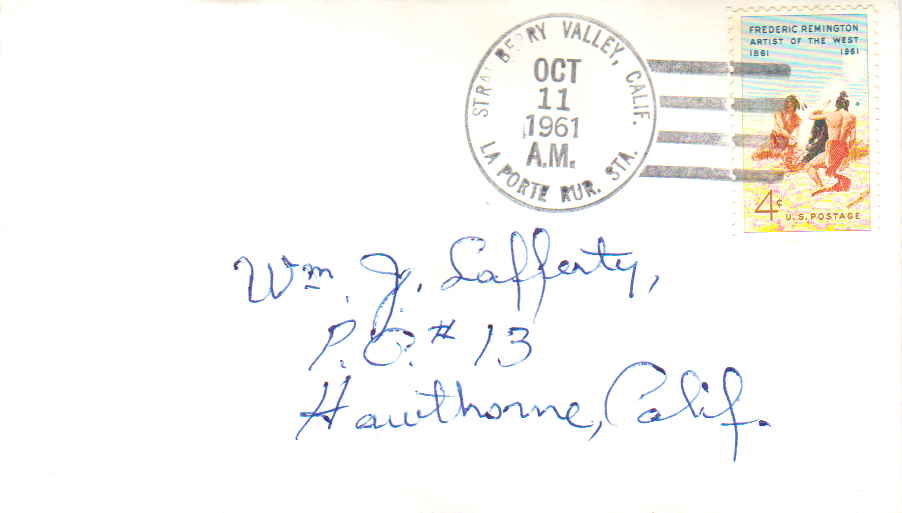 STRAWBERRY VALLEY, CALIF.
OCT
11
1961
A.M.
LA PORTE RUR. STA.
FREDERIC REMINGTON
ARTIST OF THE WEST
1861 1961
4¢ U.S. POSTAGE
Wm. J. Lafferty,
P.O. # 13
Hawthorne, Calif.